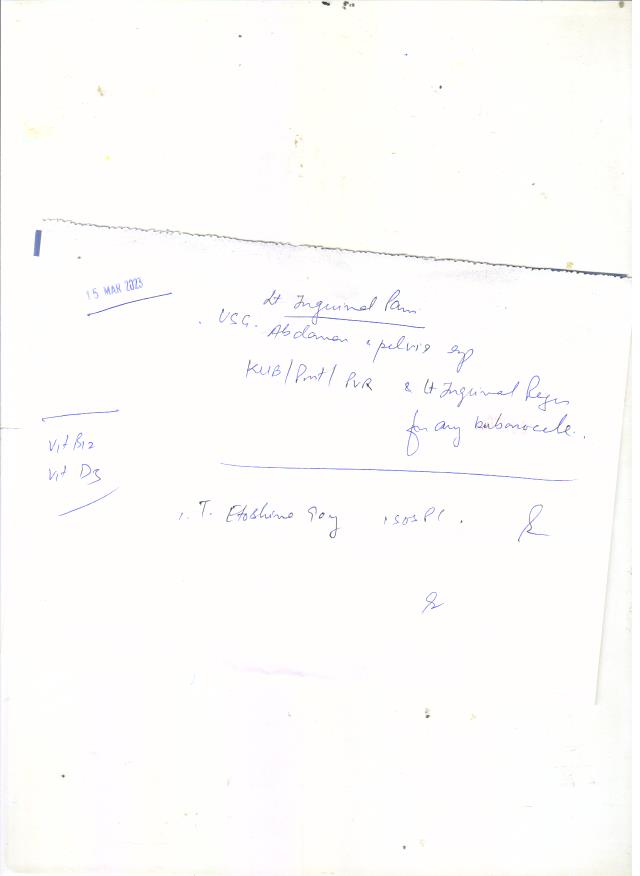 15 MAR 2023
Lt Inguinal Pain
USG. Abdomen & pelvis esp
KUB/Prost/PVR & Lt Inguinal Region
for any bubonocele.
Vit B12
Vit D3
T. Etoshine 90mg 1 SOS